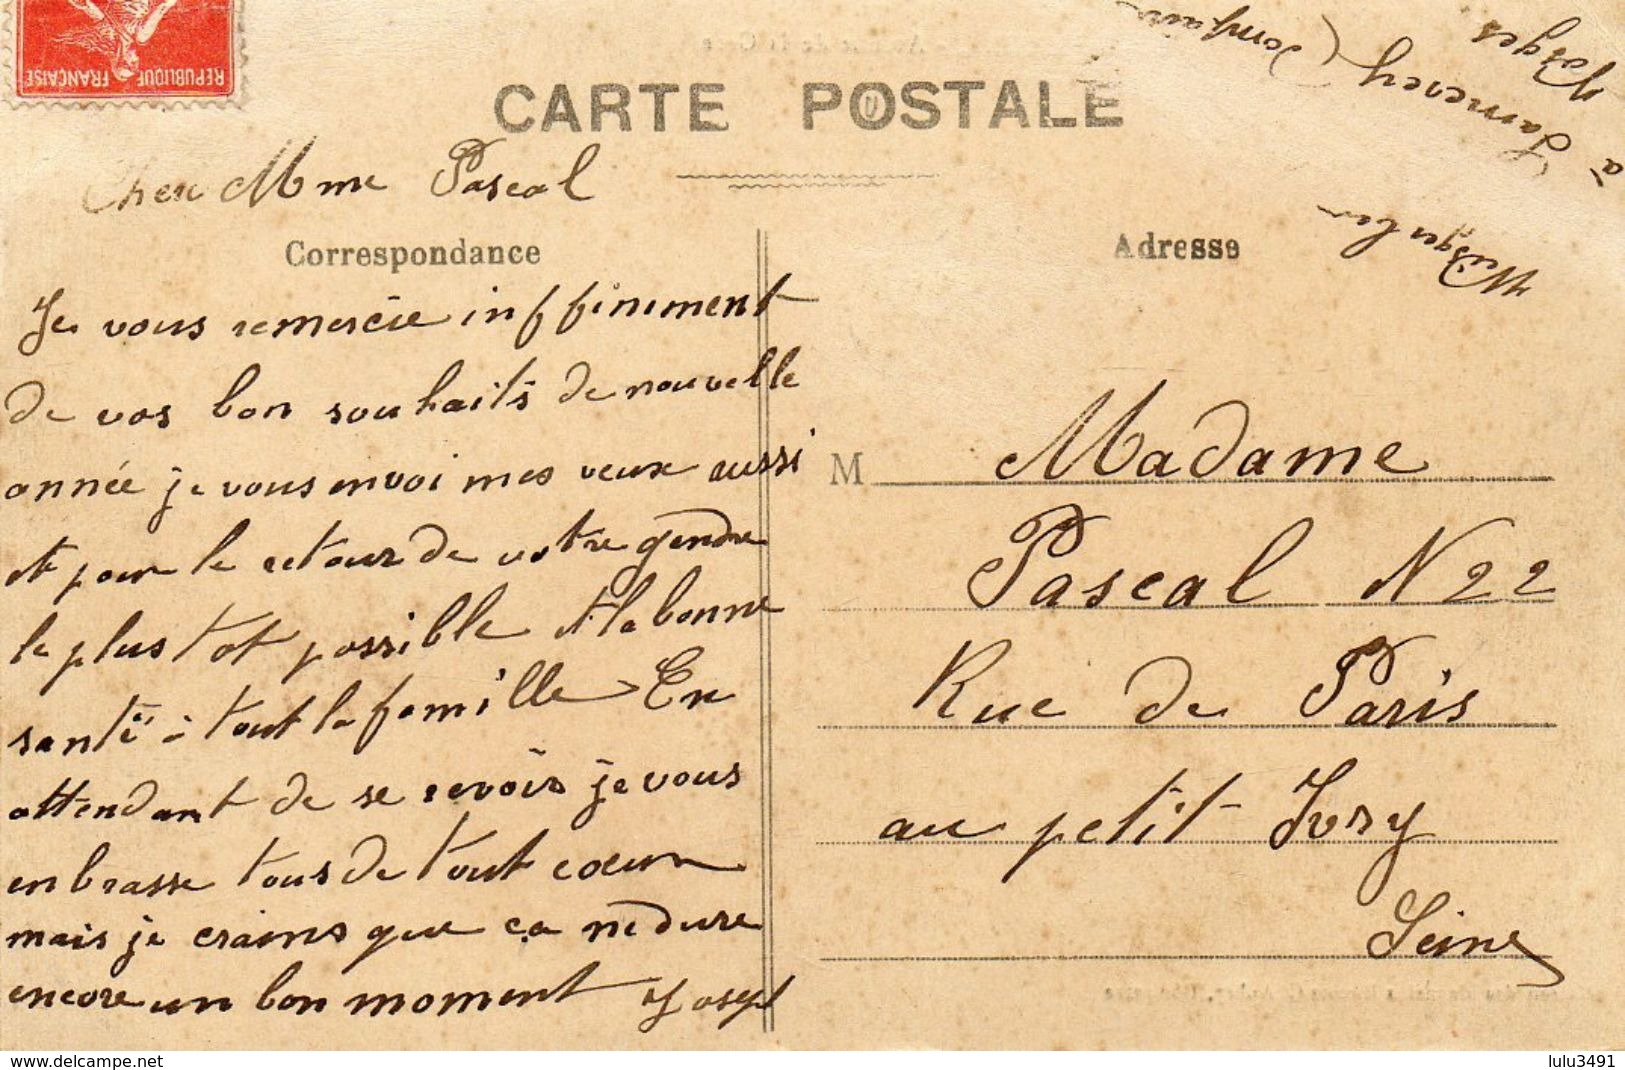 REPUBLIQUE FRANÇAISE
CARTE POSTALE
Cher Mme Pascal
Correspondance
Je vous remercie inffiniment
de vos bon souhaits de nouvelle
année je vous envoi mes veux aussi
et pour le retour de votre gendre
le plus tot possible et la bonne
santé à tout la famille En
attendant de se revois je vous
enbrasse tous de tout cœur
mais je crains que ça ne dure
encore un bon moment Joseph
à Lamerey Dompaire
Vosges
Adresse
M Madame
Pascal N 22
Rue de Paris
au petit Ivry
Seine
www.delcampe.net
lulu3491